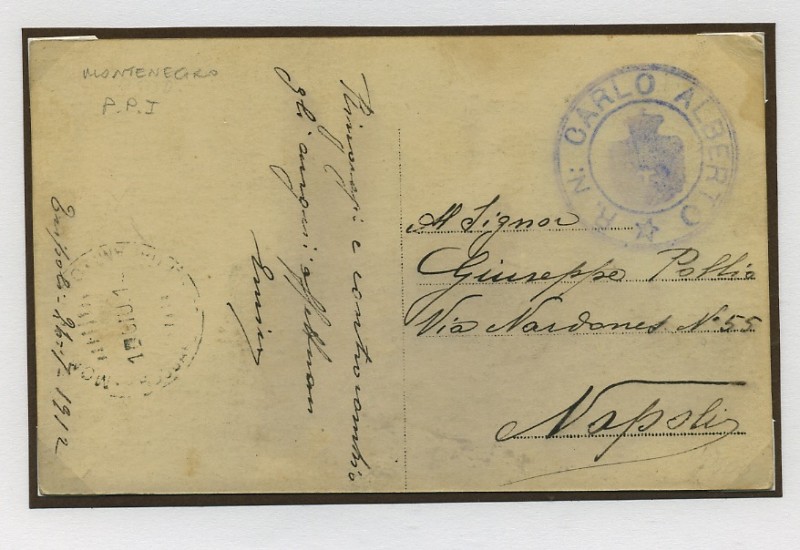 MONTENEGRO
P.P.I
Ringrazio e contraccambio
gli auguri affettuosi
1912
R. N: CARLO ALBERTO
Al Signor
Giuseppe Pollia
Via Nardones N. 55
Napoli